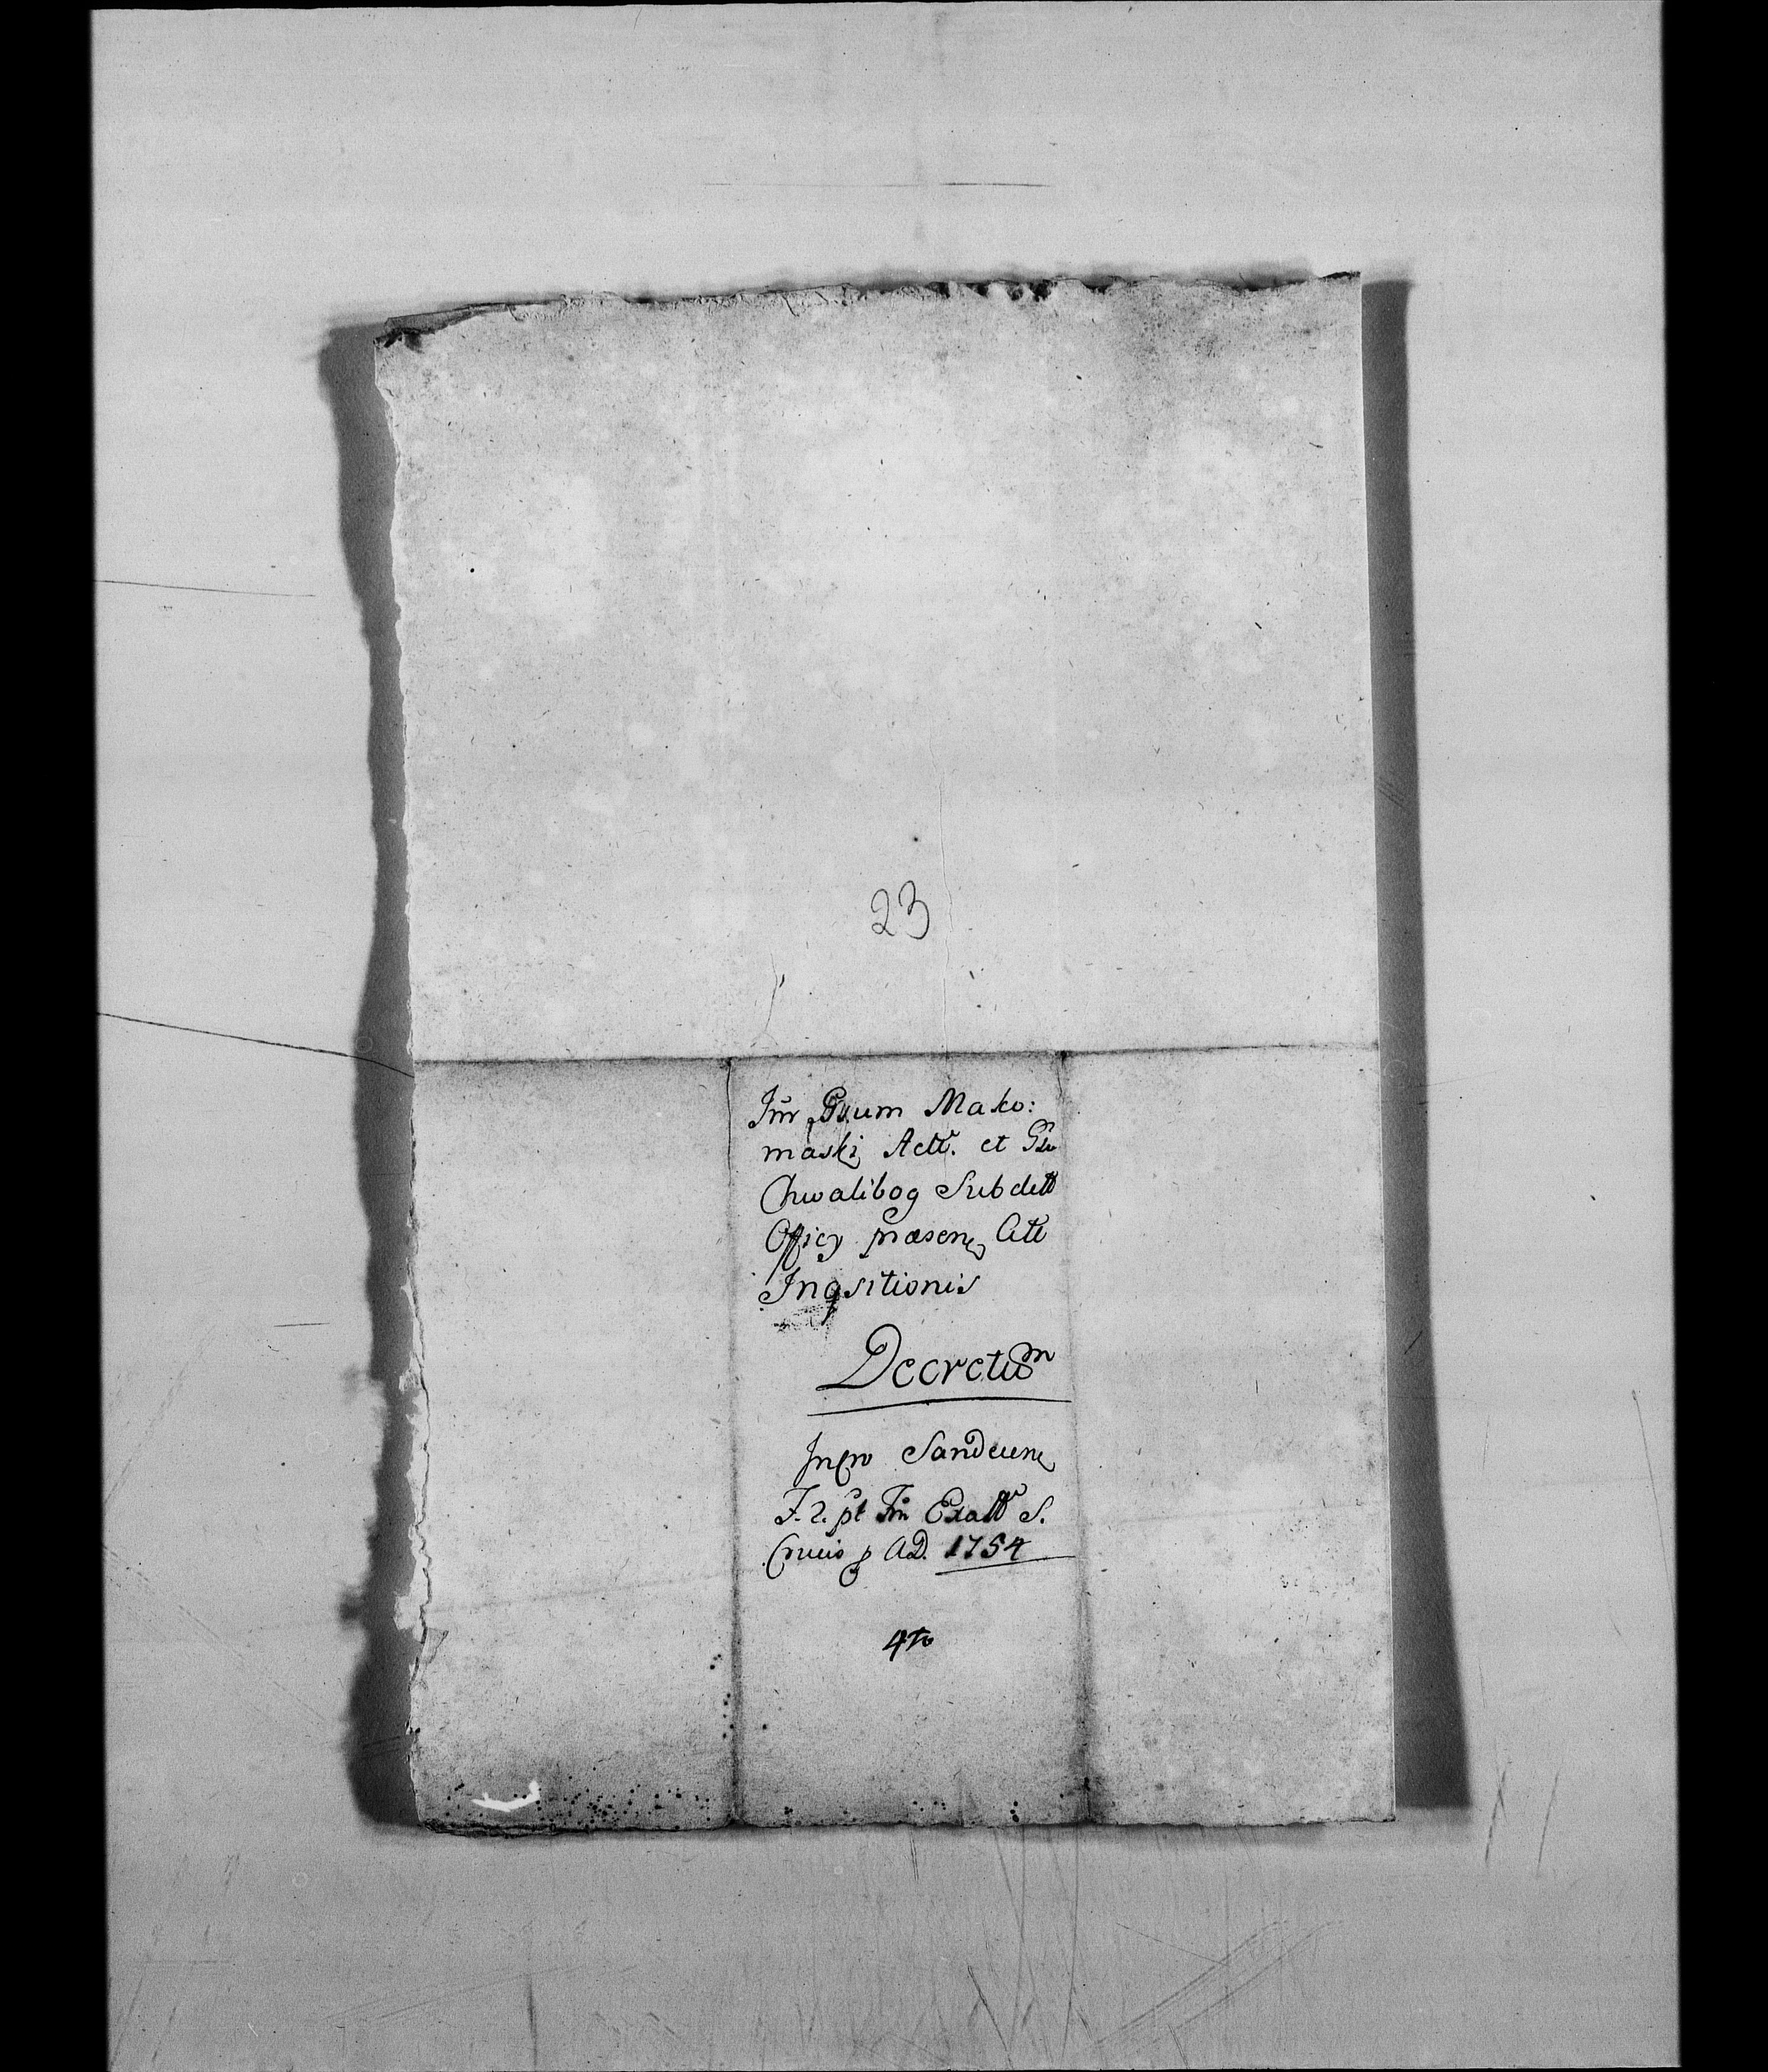 23
Inr Gsum Mako:
maski Actt. et Gso
Chwalibog Subdett
Officy præsen Citt
Inqsitionis
Decretum
In Cro Sandecen
F. 2. pt Fm Exalt S.
Crucis p AD. 1754
4to